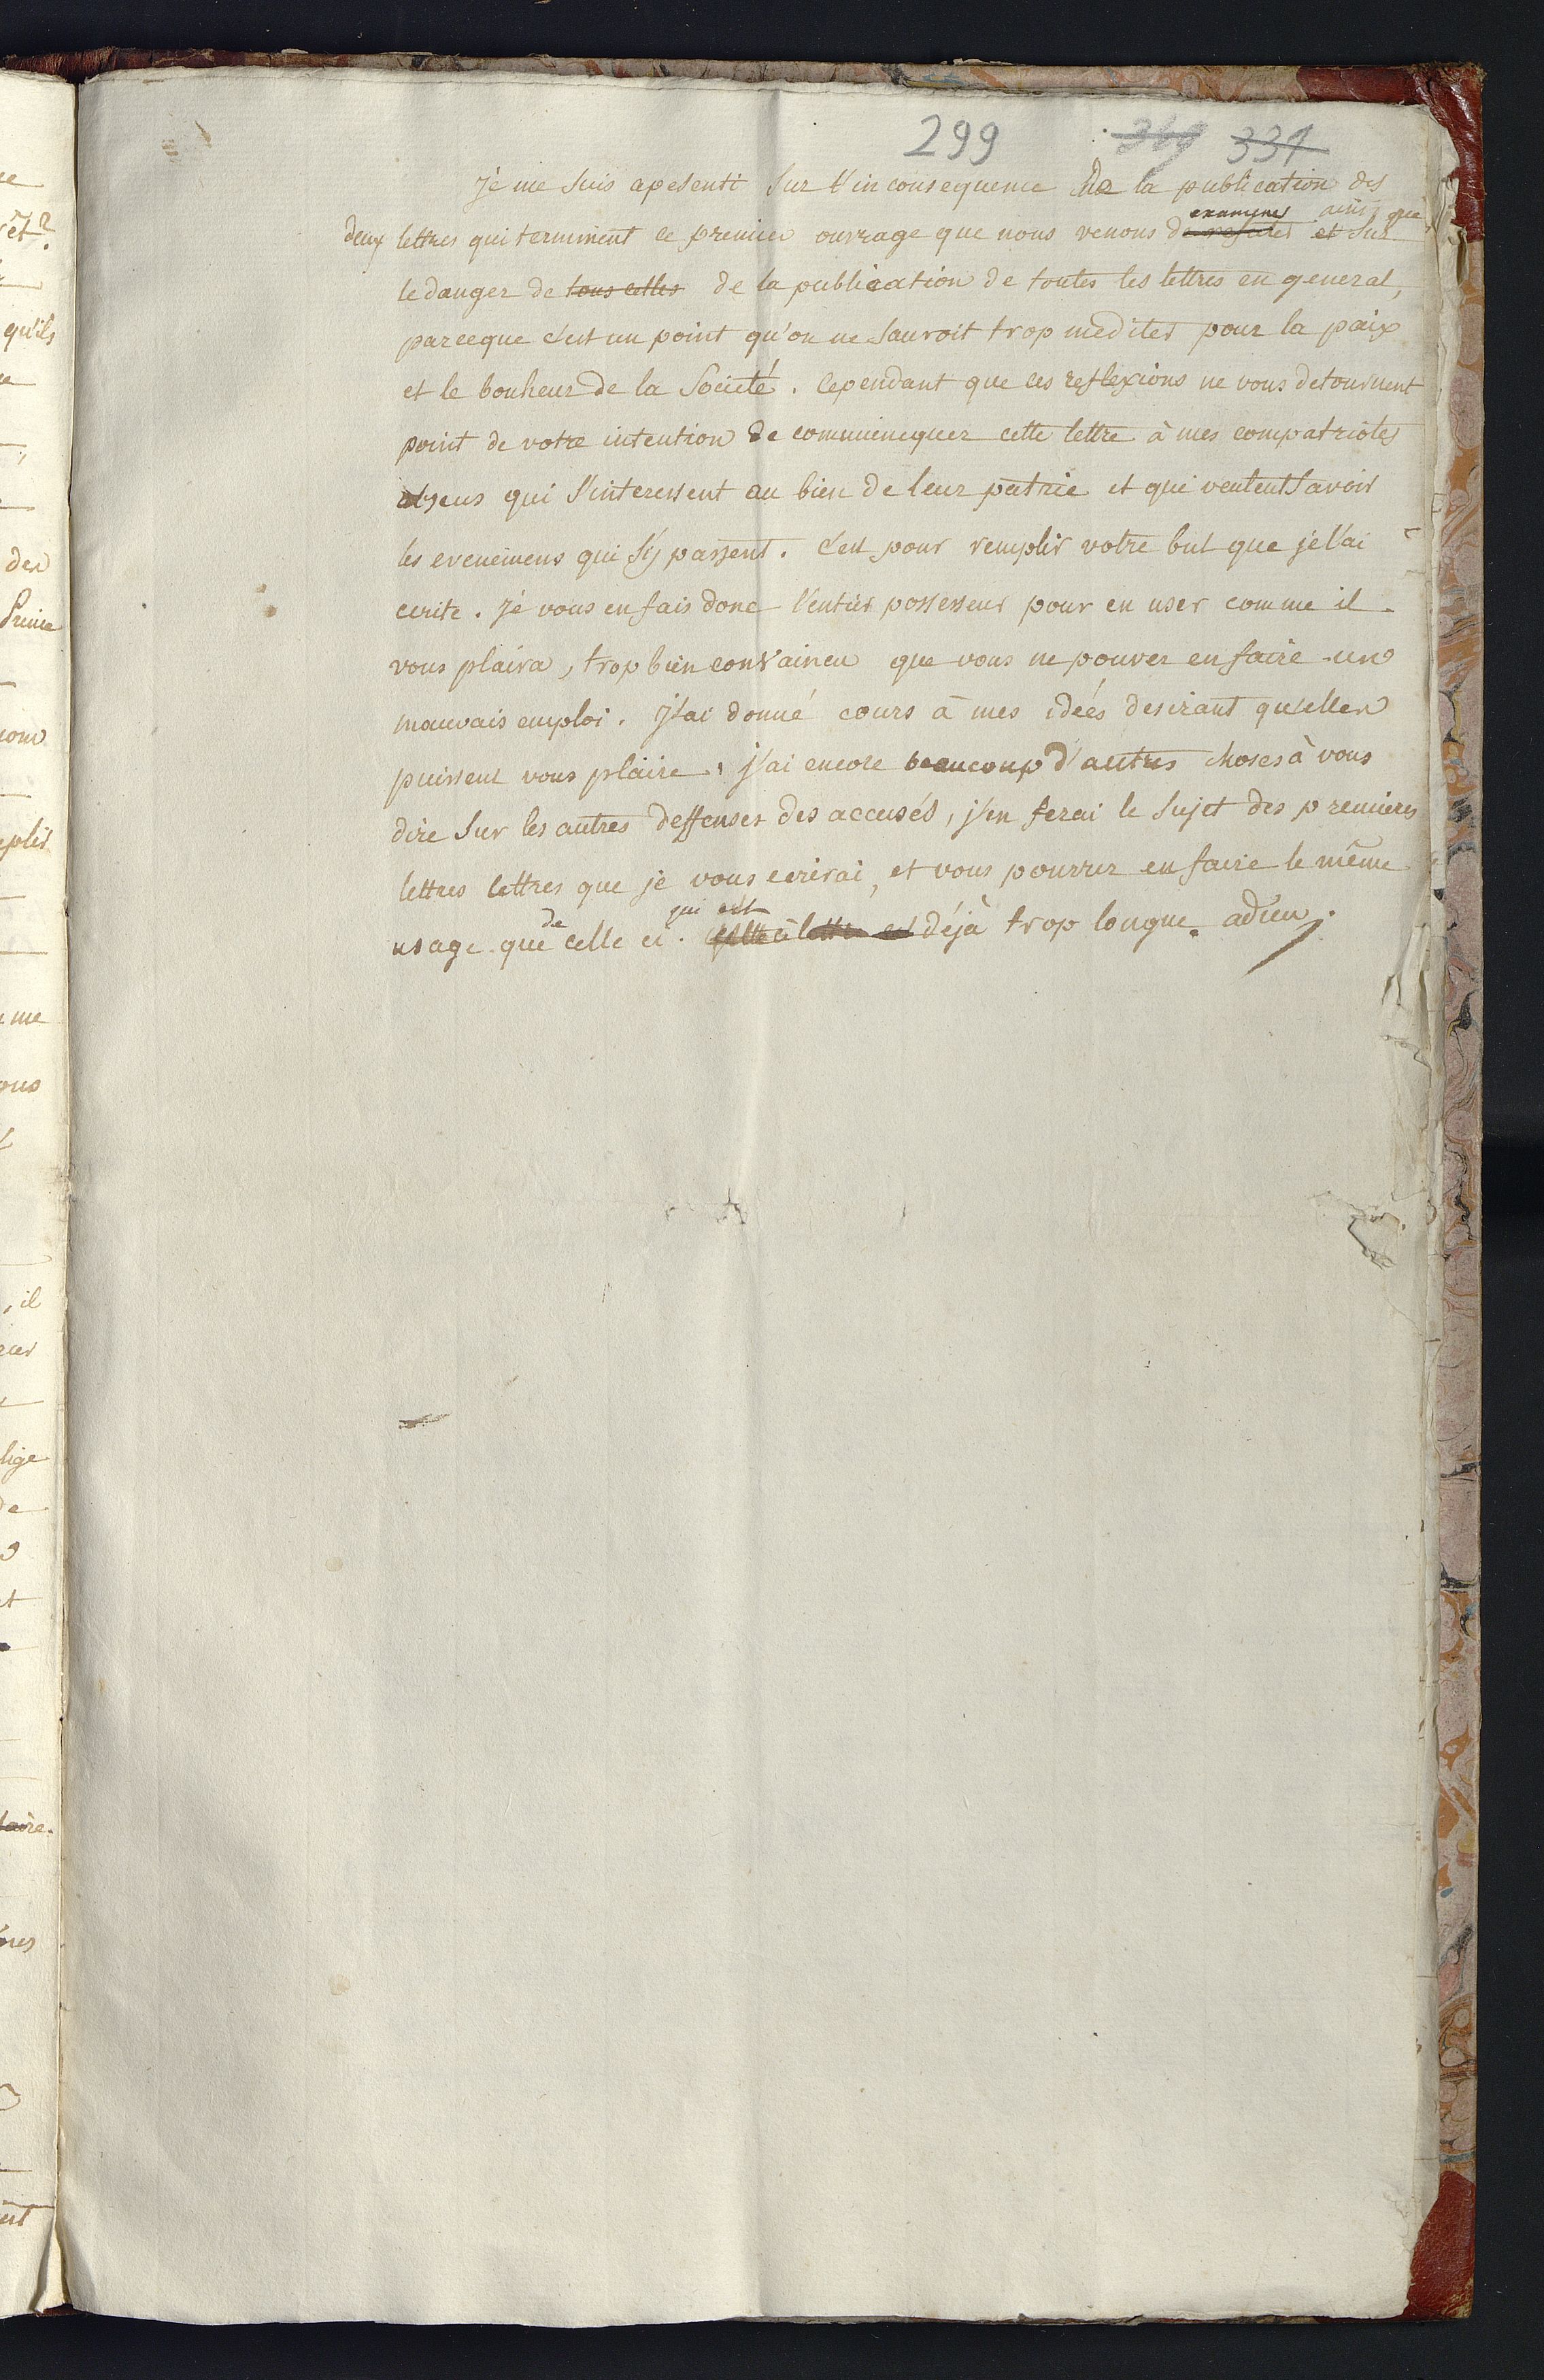 299 331
Je me suis apesenti sur l'inconsequence de la publication des
examiner ainsi que
deux lettres qui terminent ce premier ouvrage que nous venons de refuter et sur
le danger de tous celles de la publication de toutes les lettres en general,
parceque c'est un point qu'on ne sauroit trop mediter pour la paix
et le bonheur de la Societé. Cependant que ces reflexions ne vous detournent
point de votre intention de communequer cette lettre à mes compatriotes
absens qui s'interessent au bien de leur patrie et qui veulent savoir
les evenemens qui s'y passent. c'est pour remplir votre but que je l'ai
ecrite. Je vous en fais donc l'entier possesseur pour en user comme il
vous plaira, trop bien convaincu que vous ne pouver en faire un
mauvais emploi. J'ai donné cours à mes idées desirant qu'elles
puissent vous plaire, j'ai encore beaucoup d'autres choses à vous
dire sur les autres deffenses des accusés, j'en ferai le sujet des premieres
lettres lettres que je vous ecrirai, et vous pourrez en faire le même
de qui est
usage que celle ci. cette lettre est déjà trop longue. adieu.
ret?
qu'ils
der
Prince
eplir
me
ous
, il
lige
de
et
faire.